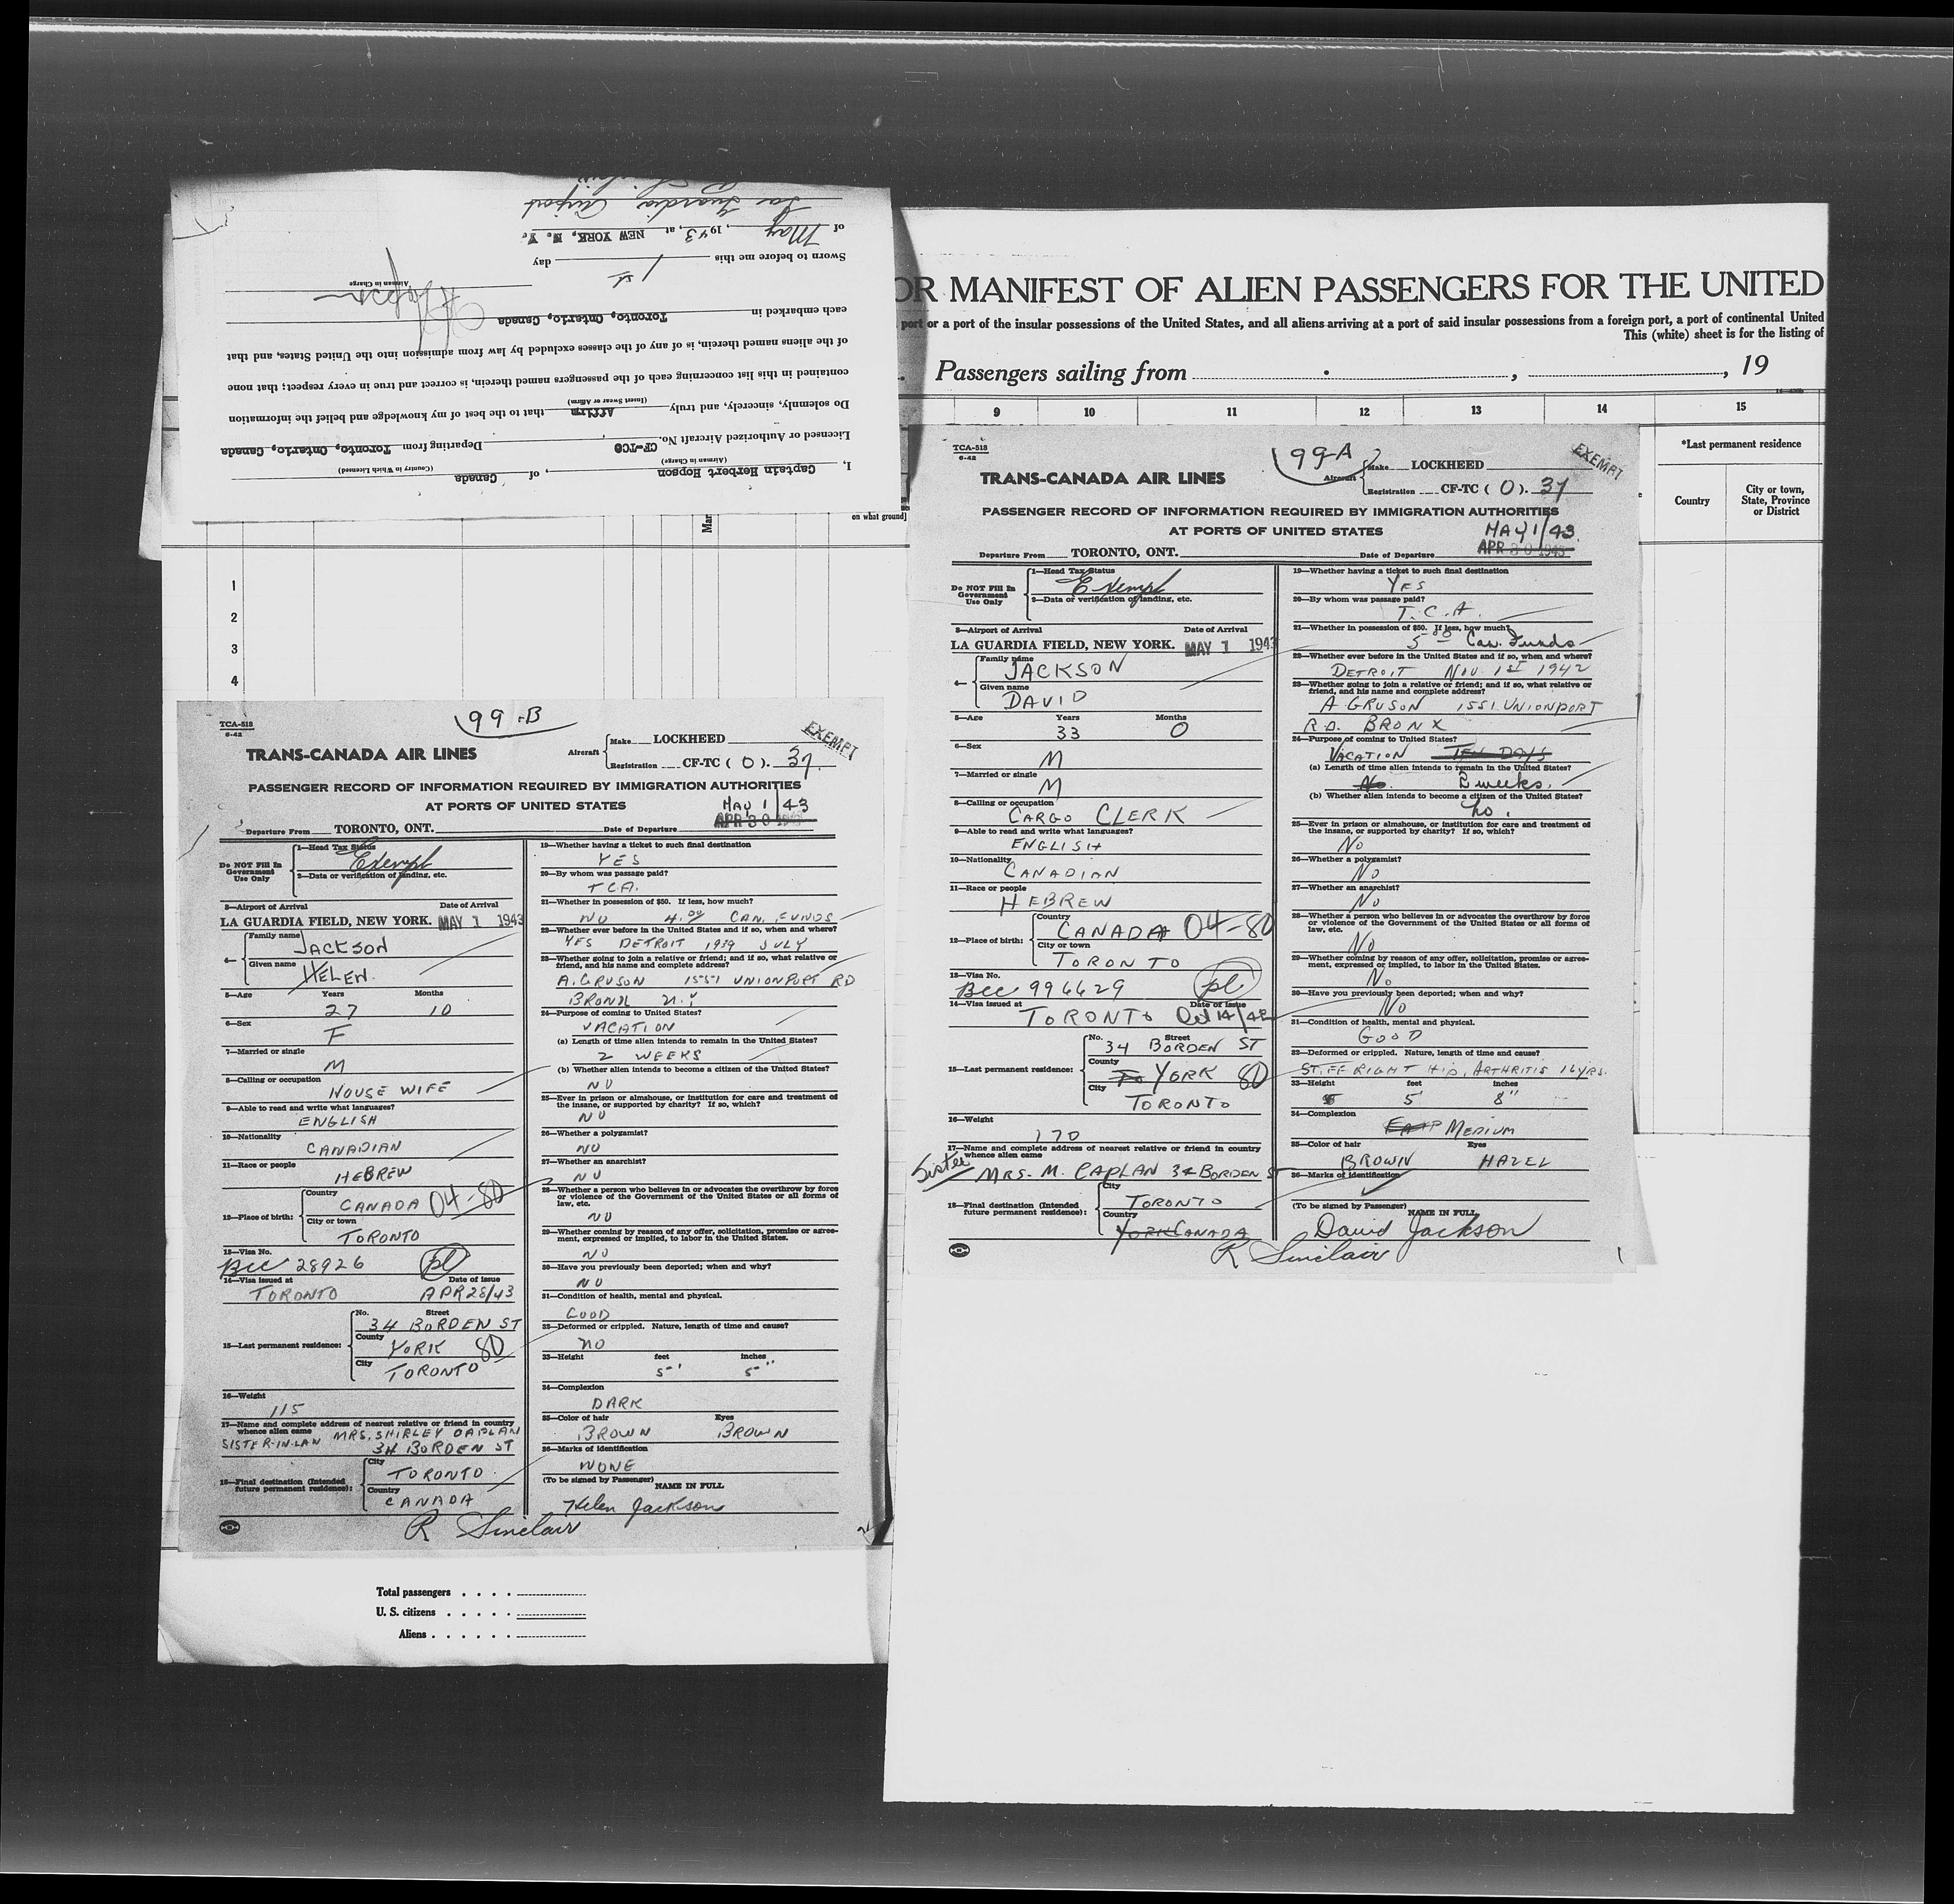 I, Captain Herbert Hopson, of Canada
(Airman in Charge) (Country in Which Licensed)
Licensed or Authorized Aircraft No. CF-TCO, Departing from Toronto, Ontario, Canada
Do solemnly, sincerely, and truly Affirm that to the best of my knowledge and belief the information
(Insert Swear or Affirm)
contained in this list concerning each of the passengers named therein, is correct and true in every respect; that none
of the aliens named therein, is of any of the classes excluded by law from admission into the United States, and that
each embarked in Toronto, Ontario, Canada
Hopson
Airman in Charge
Sworn to before me this 1st day
of May, 1943, at NEW YORK, N. Y.
La Guardia Airport
OR MANIFEST OF ALIEN PASSENGERS FOR THE UNITED
port or a port of the insular possessions of the United States, and all aliens arriving at a port of said insular possessions from a foreign port, a port of continental United
This (white) sheet is for the listing of
Passengers sailing from , , 19
9 10 11 12 13 14 15
*Last permanent residence
Country
City or town, State, Province or District
on what ground]
1
2
3
4
TCA-518
6-42
99-B
EXEMPT
TRANS-CANADA AIR LINES
Aircraft
Make LOCKHEED
Registration CF-TC ( O ). 37
PASSENGER RECORD OF INFORMATION REQUIRED BY IMMIGRATION AUTHORITIES
AT PORTS OF UNITED STATES
MAY 1/43
Departure From TORONTO, ONT. Date of Departure APR 30 1943
Do NOT Fill In Government Use Only
1—Head Tax Status
Exempt
2—Data or verification of landing, etc.
3—Airport of Arrival Date of Arrival
LA GUARDIA FIELD, NEW YORK. MAY 1 1943
4—
Family name
JACKSON
Given name
HELEN.
5—Age Years Months
27 10
6—Sex
F
7—Married or single
M
8—Calling or occupation
HOUSE WIFE
9—Able to read and write what languages?
ENGLISH
10—Nationality
CANADIAN
11—Race or people
HEBREW
12—Place of birth:
Country
CANADA 04-80
City or town
TORONTO
13—Visa No.
BCC 28926 pl
14—Visa issued at Date of issue
TORONTO APR 28/43
15—Last permanent residence:
No. Street
34 BORDEN ST
County
YORK 80
City
TORONTO
16—Weight
115
17—Name and complete address of nearest relative or friend in country
whence alien came MRS. SHIRLEY CAPLAN
SISTER-IN-LAW 34 BORDEN ST
18—Final destination (Intended future permanent residence):
City
TORONTO.
Country
CANADA
R Sinclair
19—Whether having a ticket to such final destination
YES
20—By whom was passage paid?
T.C.A.
21—Whether in possession of $50. If less, how much?
NO 4.00 CAN. FUNDS
22—Whether ever before in the United States and if so, when and where?
YES DETROIT 1939 JULY
23—Whether going to join a relative or friend; and if so, what relative or
friend, and his name and complete address?
A. GRUSON 1551 UNIONPORT RD
BRONX N.Y.
24—Purpose of coming to United States?
VACATION
(a) Length of time alien intends to remain in the United States?
2 WEEKS
(b) Whether alien intends to become a citizen of the United States?
NO
25—Ever in prison or almshouse, or institution for care and treatment of
the insane, or supported by charity? If so, which?
NO
26—Whether a polygamist?
NO
27—Whether an anarchist?
NO
28—Whether a person who believes in or advocates the overthrow by force
or violence of the Government of the United States or all forms of
law, etc.
NO
29—Whether coming by reason of any offer, solicitation, promise or agree-
ment, expressed or implied, to labor in the United States.
NO
30—Have you previously been deported; when and why?
NO
31—Condition of health, mental and physical.
GOOD
32—Deformed or crippled. Nature, length of time and cause?
NO
33—Height feet inches
5' 5"
34—Complexion
DARK
35—Color of hair Eyes
BROWN BROWN
36—Marks of identification
NONE
(To be signed by Passenger)
NAME IN FULL
Helen Jackson
Total passengers . . . .
U. S. citizens . . . . .
Aliens . . . . . .
TCA-518
6-42
99-A
EXEMPT
TRANS-CANADA AIR LINES
Aircraft
Make LOCKHEED
Registration CF-TC ( O ). 37
PASSENGER RECORD OF INFORMATION REQUIRED BY IMMIGRATION AUTHORITIES
AT PORTS OF UNITED STATES
MAY 1/43.
Departure From TORONTO, ONT. Date of Departure APR 30 1943
Do NOT Fill In Government Use Only
1—Head Tax Status
Exempt
2—Data or verification of landing, etc.
3—Airport of Arrival Date of Arrival
LA GUARDIA FIELD, NEW YORK. MAY 1 1943
4—
Family name
JACKSON
Given name
DAVID
5—Age Years Months
33 0
6—Sex
M
7—Married or single
M
8—Calling or occupation
CARGO CLERK
9—Able to read and write what languages?
ENGLISH
10—Nationality
CANADIAN
11—Race or people
HEBREW
12—Place of birth:
Country
CANADA 04-80
City or town
TORONTO
13—Visa No.
BCC 996629 pl
14—Visa issued at Date of issue
TORONTO Oct 14/42
15—Last permanent residence:
No. Street
34 BORDEN ST
County
To YORK 80
City
TORONTO
16—Weight
170
17—Name and complete address of nearest relative or friend in country
whence alien came
Sister MRS. M. CAPLAN 34 BORDEN ST
18—Final destination (Intended future permanent residence):
City
TORONTO
Country
YORK CANADA
R Sinclair
19—Whether having a ticket to such final destination
YES
20—By whom was passage paid?
T.C.A.
21—Whether in possession of $50. If less, how much?
5.00 Can. Funds
22—Whether ever before in the United States and if so, when and where?
DETROIT NOV 1ST 1942
23—Whether going to join a relative or friend; and if so, what relative or
friend, and his name and complete address?
A GRUSON 1551 UNIONPORT
RD. BRONX
24—Purpose of coming to United States?
VACATION TEN DAYS
(a) Length of time alien intends to remain in the United States?
No. 2 weeks.
(b) Whether alien intends to become a citizen of the United States?
no.
25—Ever in prison or almshouse, or institution for care and treatment of
the insane, or supported by charity? If so, which?
No
26—Whether a polygamist?
No
27—Whether an anarchist?
No
28—Whether a person who believes in or advocates the overthrow by force
or violence of the Government of the United States or all forms of
law, etc.
No
29—Whether coming by reason of any offer, solicitation, promise or agree-
ment, expressed or implied, to labor in the United States.
No
30—Have you previously been deported; when and why?
No
31—Condition of health, mental and physical.
GOOD
32—Deformed or crippled. Nature, length of time and cause?
STIFF RIGHT HIP, ARTHRITIS 16 YRS.
33—Height feet inches
5' 8"
34—Complexion
MEDIUM
35—Color of hair Eyes
BROWN HAZEL
36—Marks of identification
(To be signed by Passenger)
NAME IN FULL
David Jackson